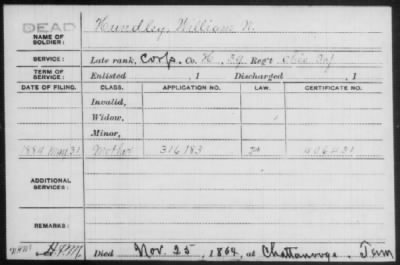 DEAD
NAME OF SOLDIER: Hundley, William N.
SERVICE: Late rank, Corp. Co. H, 39 Reg't Ohio Inf
TERM OF SERVICE: Enlisted , 1 Discharged , 1
DATE OF FILING. CLASS. APPLICATION NO. LAW. CERTIFICATE NO.
Invalid,
Widow,
Minor,
1884 Mother 316183
ADDITIONAL SERVICES:
REMARKS:
Died Nov. 25, 1864, at Chattanooga, Tenn